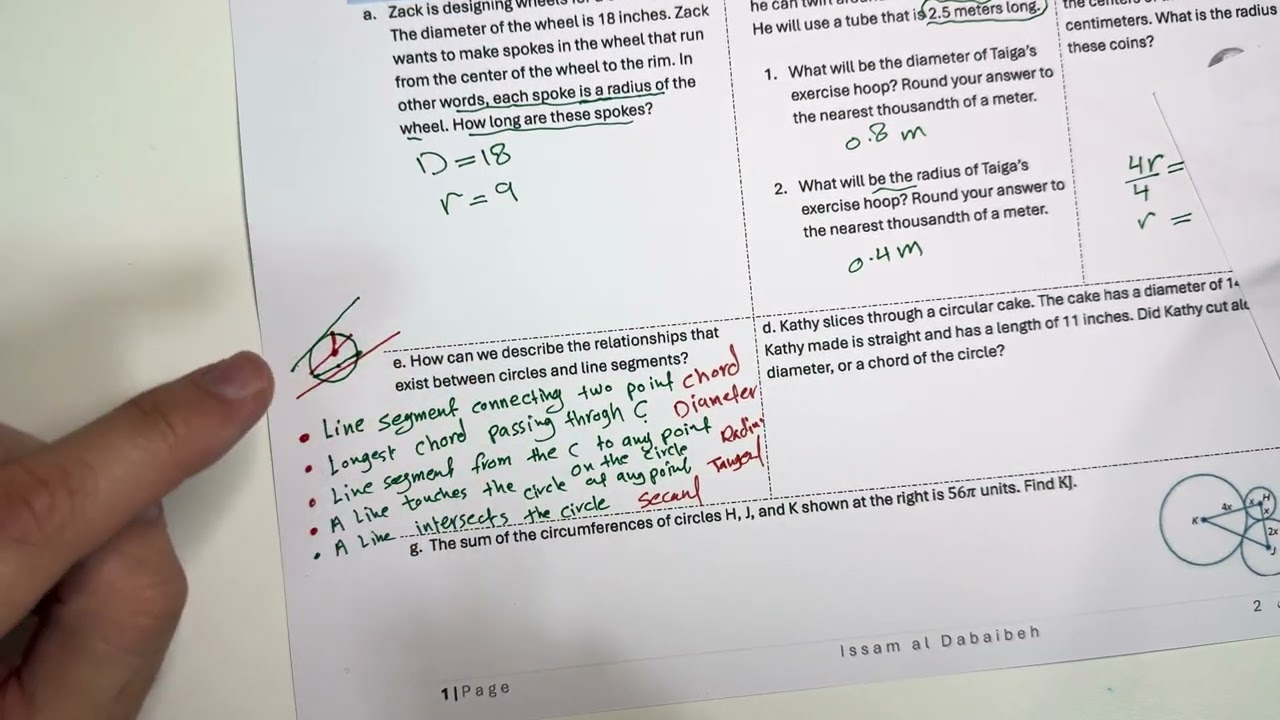 a. Zack is designing wheels for a
The diameter of the wheel is 18 inches. Zack
wants to make spokes in the wheel that run
from the center of the wheel to the rim. In
other words, each spoke is a radius of the
wheel. How long are these spokes?
D = 18
r = 9
he can twirl
He will use a tube that is 2.5 meters long.
1. What will be the diameter of Taiga's
exercise hoop? Round your answer to
the nearest thousandth of a meter.
0.8 m
2. What will be the radius of Taiga's
exercise hoop? Round your answer to
the nearest thousandth of a meter.
0.4 m
the centers
centimeters. What is the radius
these coins?
4r =
4
r =
e. How can we describe the relationships that
exist between circles and line segments?
• Line segment connecting two point chord
• Longest chord passing throgh C Diameter
• Line segment from the C to any point Radius
on the circle
• A Line touches the circle at any point Tangent
• A Line intersects the circle secant
d. Kathy slices through a circular cake. The cake has a diameter of 14
Kathy made is straight and has a length of 11 inches. Did Kathy cut
diameter, or a chord of the circle?
g. The sum of the circumferences of circles H, J, and K shown at the right is 56π units. Find KJ.
K 4x x H
x
2x
J
2
Issam al Dabaibeh
1|Page